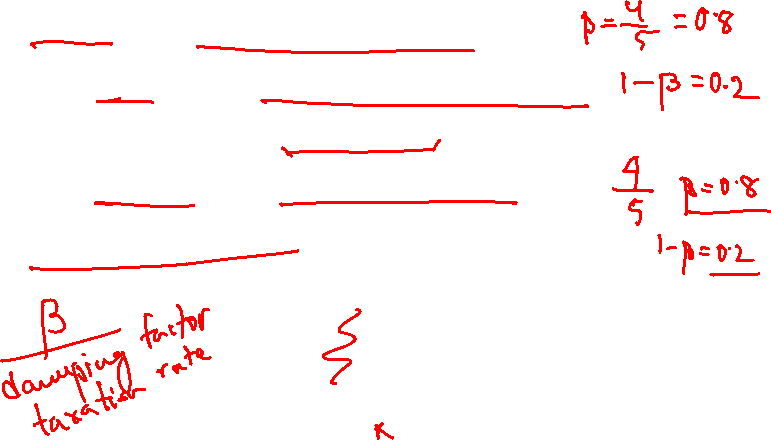 β = 4/5 = 0.8
1 - β = 0.2
4/5 β = 0.8
1 - β = 0.2
β
damping factor
taxation rate